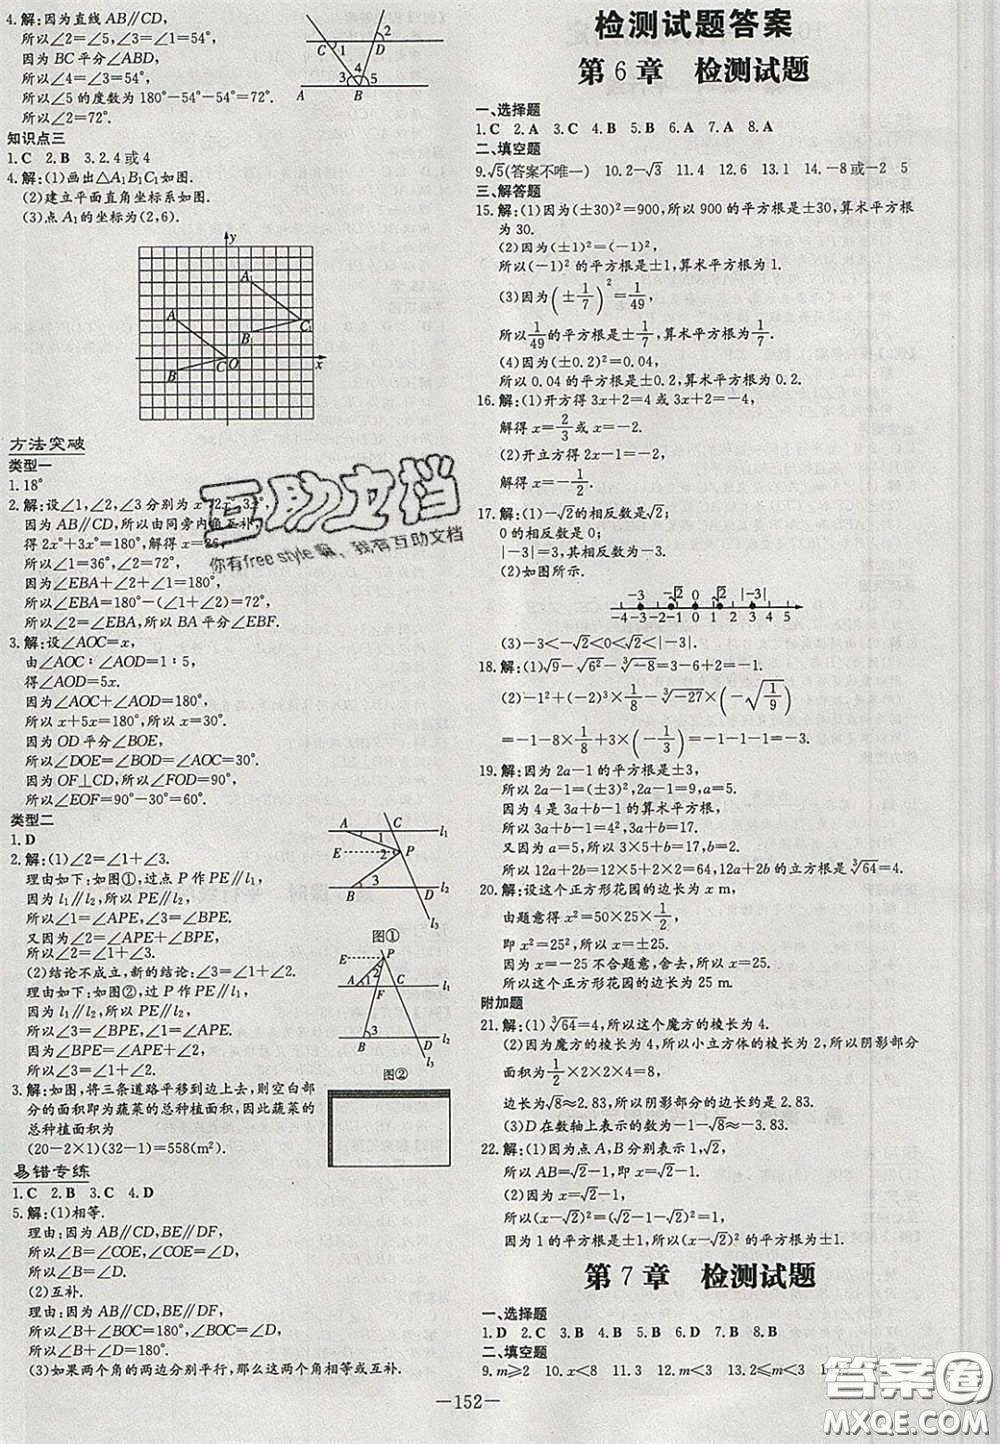 4.解:因为直线AB∥CD,
所以∠2=∠5,∠3=∠1=54°,
因为BC平分∠ABD,
所以∠4=∠3=54°,
所以∠5的度数为180°-54°-54°=72°.
所以∠2=72°.
知识点三
1.C 2.B 3.2.4或4
4.解:(1)画出△A₁B₁C₁如图.
(2)建立平面直角坐标系如图.
(3)点A₁的坐标为(2,6).
方法突破
类型一
1.18°
2.解:设∠1,∠2,∠3分别为x°,2x°,3x°.
因为AB∥CD,所以由同旁内角互补,
得2x°+3x°=180°,解得x=36,
所以∠1=36°,∠2=72°.
因为∠EBA+∠2+∠1=180°,
所以∠EBA=180°-(∠1+∠2)=72°,
所以∠2=∠EBA,所以BA平分∠EBF.
3.解:设∠AOC=x,
由∠AOC∶∠AOD=1∶5,
得∠AOD=5x.
因为∠AOC+∠AOD=180°,
所以x+5x=180°,所以x=30°.
因为OD平分∠BOE,
所以∠DOE=∠BOD=∠AOC=30°.
因为OF⊥CD,所以∠FOD=90°,
所以∠EOF=90°-30°=60°.
类型二
1.D
2.解:(1)∠2=∠1+∠3.
理由如下:如图①,过点P作PE∥l₁,
因为l₁∥l₂,所以PE∥l₂,
所以∠1=∠APE,∠3=∠BPE.
又因为∠2=∠APE+∠BPE,
所以∠2=∠1+∠3.
图①
(2)结论不成立,新的结论:∠3=∠1+∠2.
理由如下:如图②,过P作PE∥l₁,
因为l₁∥l₂,所以PE∥l₂,
所以∠3=∠BPE,∠1=∠APE.
因为∠BPE=∠APE+∠2,
所以∠3=∠1+∠2.
图②
3.解:如图,将三条道路平移到边上去,则空白部
分的面积即为蔬菜的总种植面积,因此蔬菜的
总种植面积为
(20-2×1)(32-1)=558(m²).
易错专练
1.C 2.B 3.C 4.D
5.解:(1)相等.
理由:因为AB∥CD,BE∥DF,
所以∠B=∠COE,∠COE=∠D,
所以∠B=∠D.
(2)互补.
理由:因为AB∥CD,BE∥DF,
所以∠B+∠BOC=180°,∠BOC=∠D,
所以∠B+∠D=180°.
(3)如果两个角的两边分别平行,那么这两个角相等或互补.
检测试题答案
第6章 检测试题
一、选择题
1.C 2.A 3.C 4.B 5.B 6.A 7.A 8.A
二、填空题
9.√5(答案不唯一) 10.2-√3 11.4 12.6 13.1 14.-8或-2 5
三、解答题
15.解:(1)因为(±30)²=900,所以900的平方根是±30,算术平方根
为30.
(2)因为(±1)²=(-1)²,
所以(-1)²的平方根是±1,算术平方根为1.
(3)因为(±1/7)²=1/49,
所以1/49的平方根是±1/7,算术平方根为1/7.
(4)因为(±0.2)²=0.04,
所以0.04的平方根是±0.2,算术平方根为0.2.
16.解:(1)开方得3x+2=4或3x+2=-4,
解得x=2/3或x=-2.
(2)开立方得2x-1=-2,
解得x=-1/2.
17.解:(1)-√2的相反数是√2;
0的相反数是0;
|-3|=3,其相反数为-3.
(2)如图所示.
-3 -√2 0 √2 |-3|
-4 -3 -2 -1 0 1 2 3 4
(3)-3<-√2<0<√2<|-3|.
18.解:(1)√9-√6²-∛-8=3-6+2=-1.
(2)-1²+(-2)³×1/8-∛-27×(-√1/9)
=-1-8×1/8+3×(-1/3)=-1-1-1=-3.
19.解:因为2a-1的平方根是±3,
所以2a-1=(±3)²,2a-1=9,a=5.
因为4是3a+b-1的算术平方根,
所以3a+b-1=4²,3a+b=17.
又因为a=5,所以3×5+b=17,b=2,
所以12a+2b=12×5+2×2=64,12a+2b的立方根是∛64=4.
20.解:设这个正方形花园的边长为x m,
由题意得x²=50×25×1/2,
即x²=25²,所以x=±25.
因为x=-25不合题意,舍去,所以x=25.
所以这个正方形花园的边长为25 m.
附加题
21.解:(1)∛64=4,所以这个魔方的棱长为4.
(2)因为魔方的棱长为4,所以小立方体的棱长为2,所以阴影部分
面积为1/2×2×2×4=8,
边长为√8≈2.83,所以阴影部分的边长为2.83.
(3)D在数轴上表示的数为-1-√8≈-3.83.
22.解:(1)因为点A,B分别表示1,√2,
所以AB=√2-1,即x=√2-1.
(2)因为x=√2-1,
所以(x-√2)²=(√2-1-√2)²=1,
因为1的平方根为±1,所以(x-√2)²的平方根为±1.
第7章 检测试题
一、选择题
1.D 2.C 3.B 4.C 5.B 6.A 7.B 8.C
二、填空题
9.m≥2 10.x<8 11.3 12.m<3 13.2≤m<3
—152—
互助文档
你有free style嘛、我有互助文档
答案圈
MXQE.COM